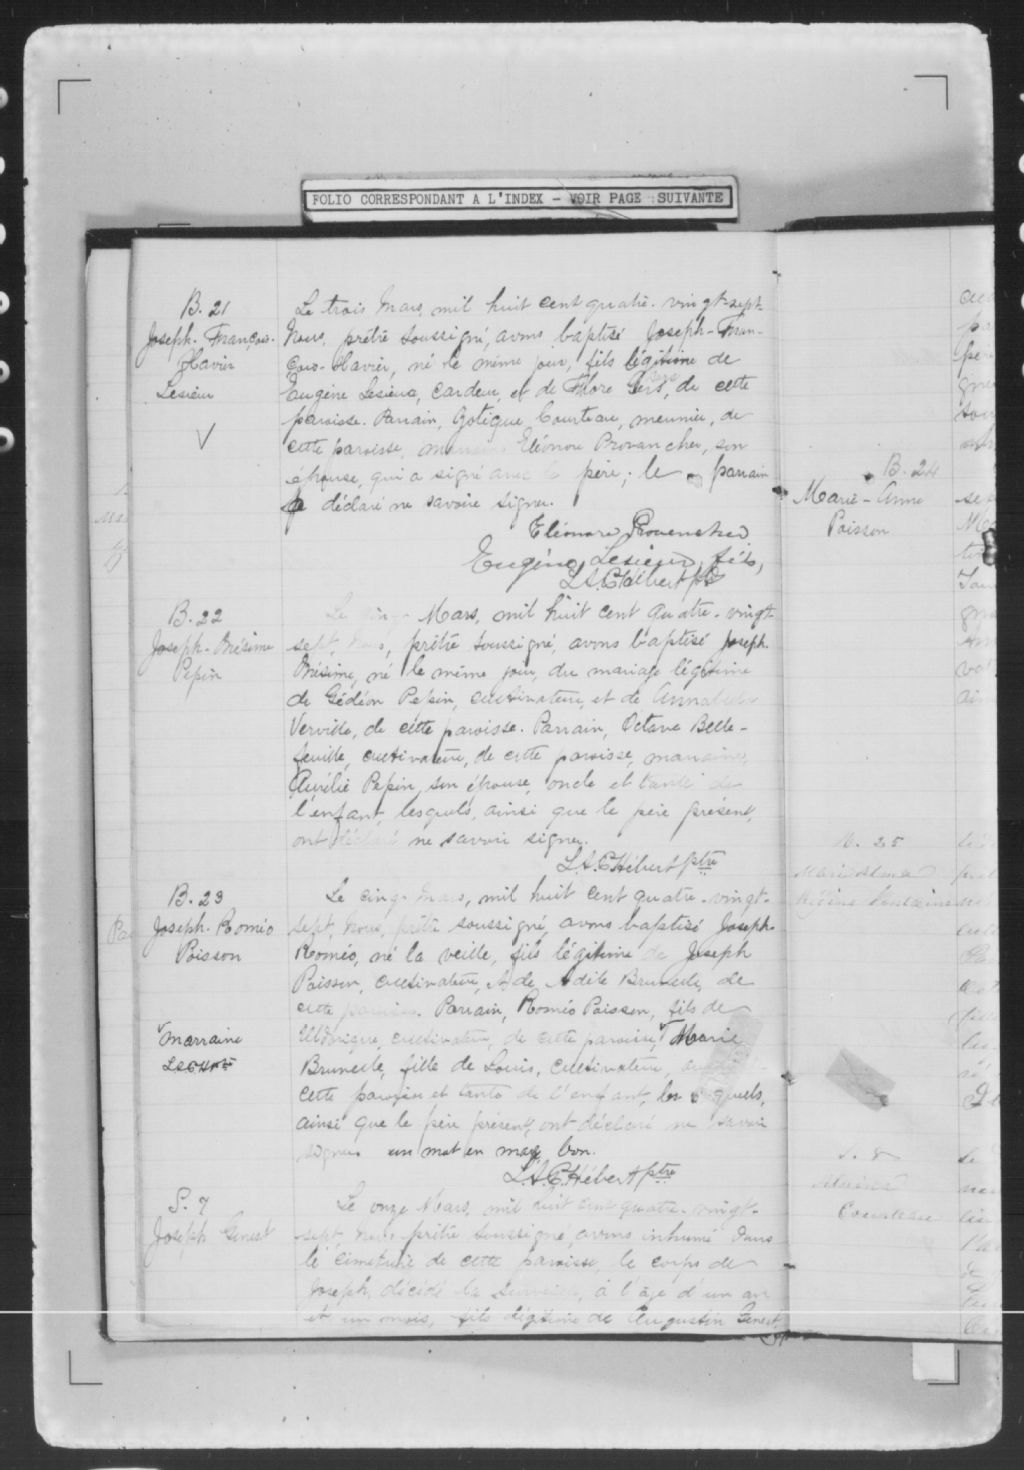 FOLIO CORRESPONDANT A L'INDEX - VOIR PAGE SUIVANTE
B. 21
Joseph-François-
Xavier
Lesieur
Le trois Mars, mil huit cent quatre-vingt-sept
Nous, prêtre soussigné, avons baptisé Joseph-Fran-
çois-Xavier, né le même jour, fils légitime de
Eugène Lesieur, cardeur, et de Flore de cette
paroisse. Parrain, Gotique Courteau, meunier, de
cette paroisse, marraine Eléonore Provancher, son
épouse, qui a signé avec le père; le parrain
a déclaré ne savoire signer.
Eléonore Provencher
Eugène Lesieur, fils,
L.A.C. Hébert ptre
B. 22
Joseph-Onésime
Pepin
Le cinq Mars, mil huit cent quatre-vingt-
sept, Nous, prêtre soussigné, avons baptisé Joseph-
Onésime, né le même jour, du mariage légitime
de Gédéon Pepin, cultivateur, et de
Verville, de cette paroisse. Parrain, Octave Belle-
feuille, cultivateur, de cette paroisse, marraine,
Aurélie Pepin, son épouse, oncle et tante de
l'enfant, lesquels, ainsi que le père présent,
ont déclaré ne savoir signer.
L.A.C. Hébert ptre
B. 23
Joseph-Roméo
Poisson
Le cinq Mars, mil huit cent quatre-vingt-
sept, Nous, prêtre soussigné, avons baptisé Joseph-
Roméo, né la veille, fils légitime de Joseph
Poisson, cultivateur, & de Adèle Brunelle, de
cette paroisse. Parrain, Roméo Poisson, fils de
Uldorique, cultivateur, de cette paroisse, Marie
marraine
Brunelle, fille de Louis, cultivateur,
cette paroisse et tante de l'enfant, lesquels,
ainsi que le père présent, ont déclaré ne savoir
signer un mot en marge bon.
L.A.C. Hébert ptre
S. 7
Joseph Genest
Le onze Mars, mil huit cent quatre-vingt-
sept, Nous prêtre soussigné, avons inhumé dans
le cimetière de cette paroisse, le corps de
Joseph, décédé la à l'âge d'un an
et un mois, fils légitime de Augustin Genest,
B. 24
Marie-Anne
Poisson
25
Fontaine
S. 8
Courteau